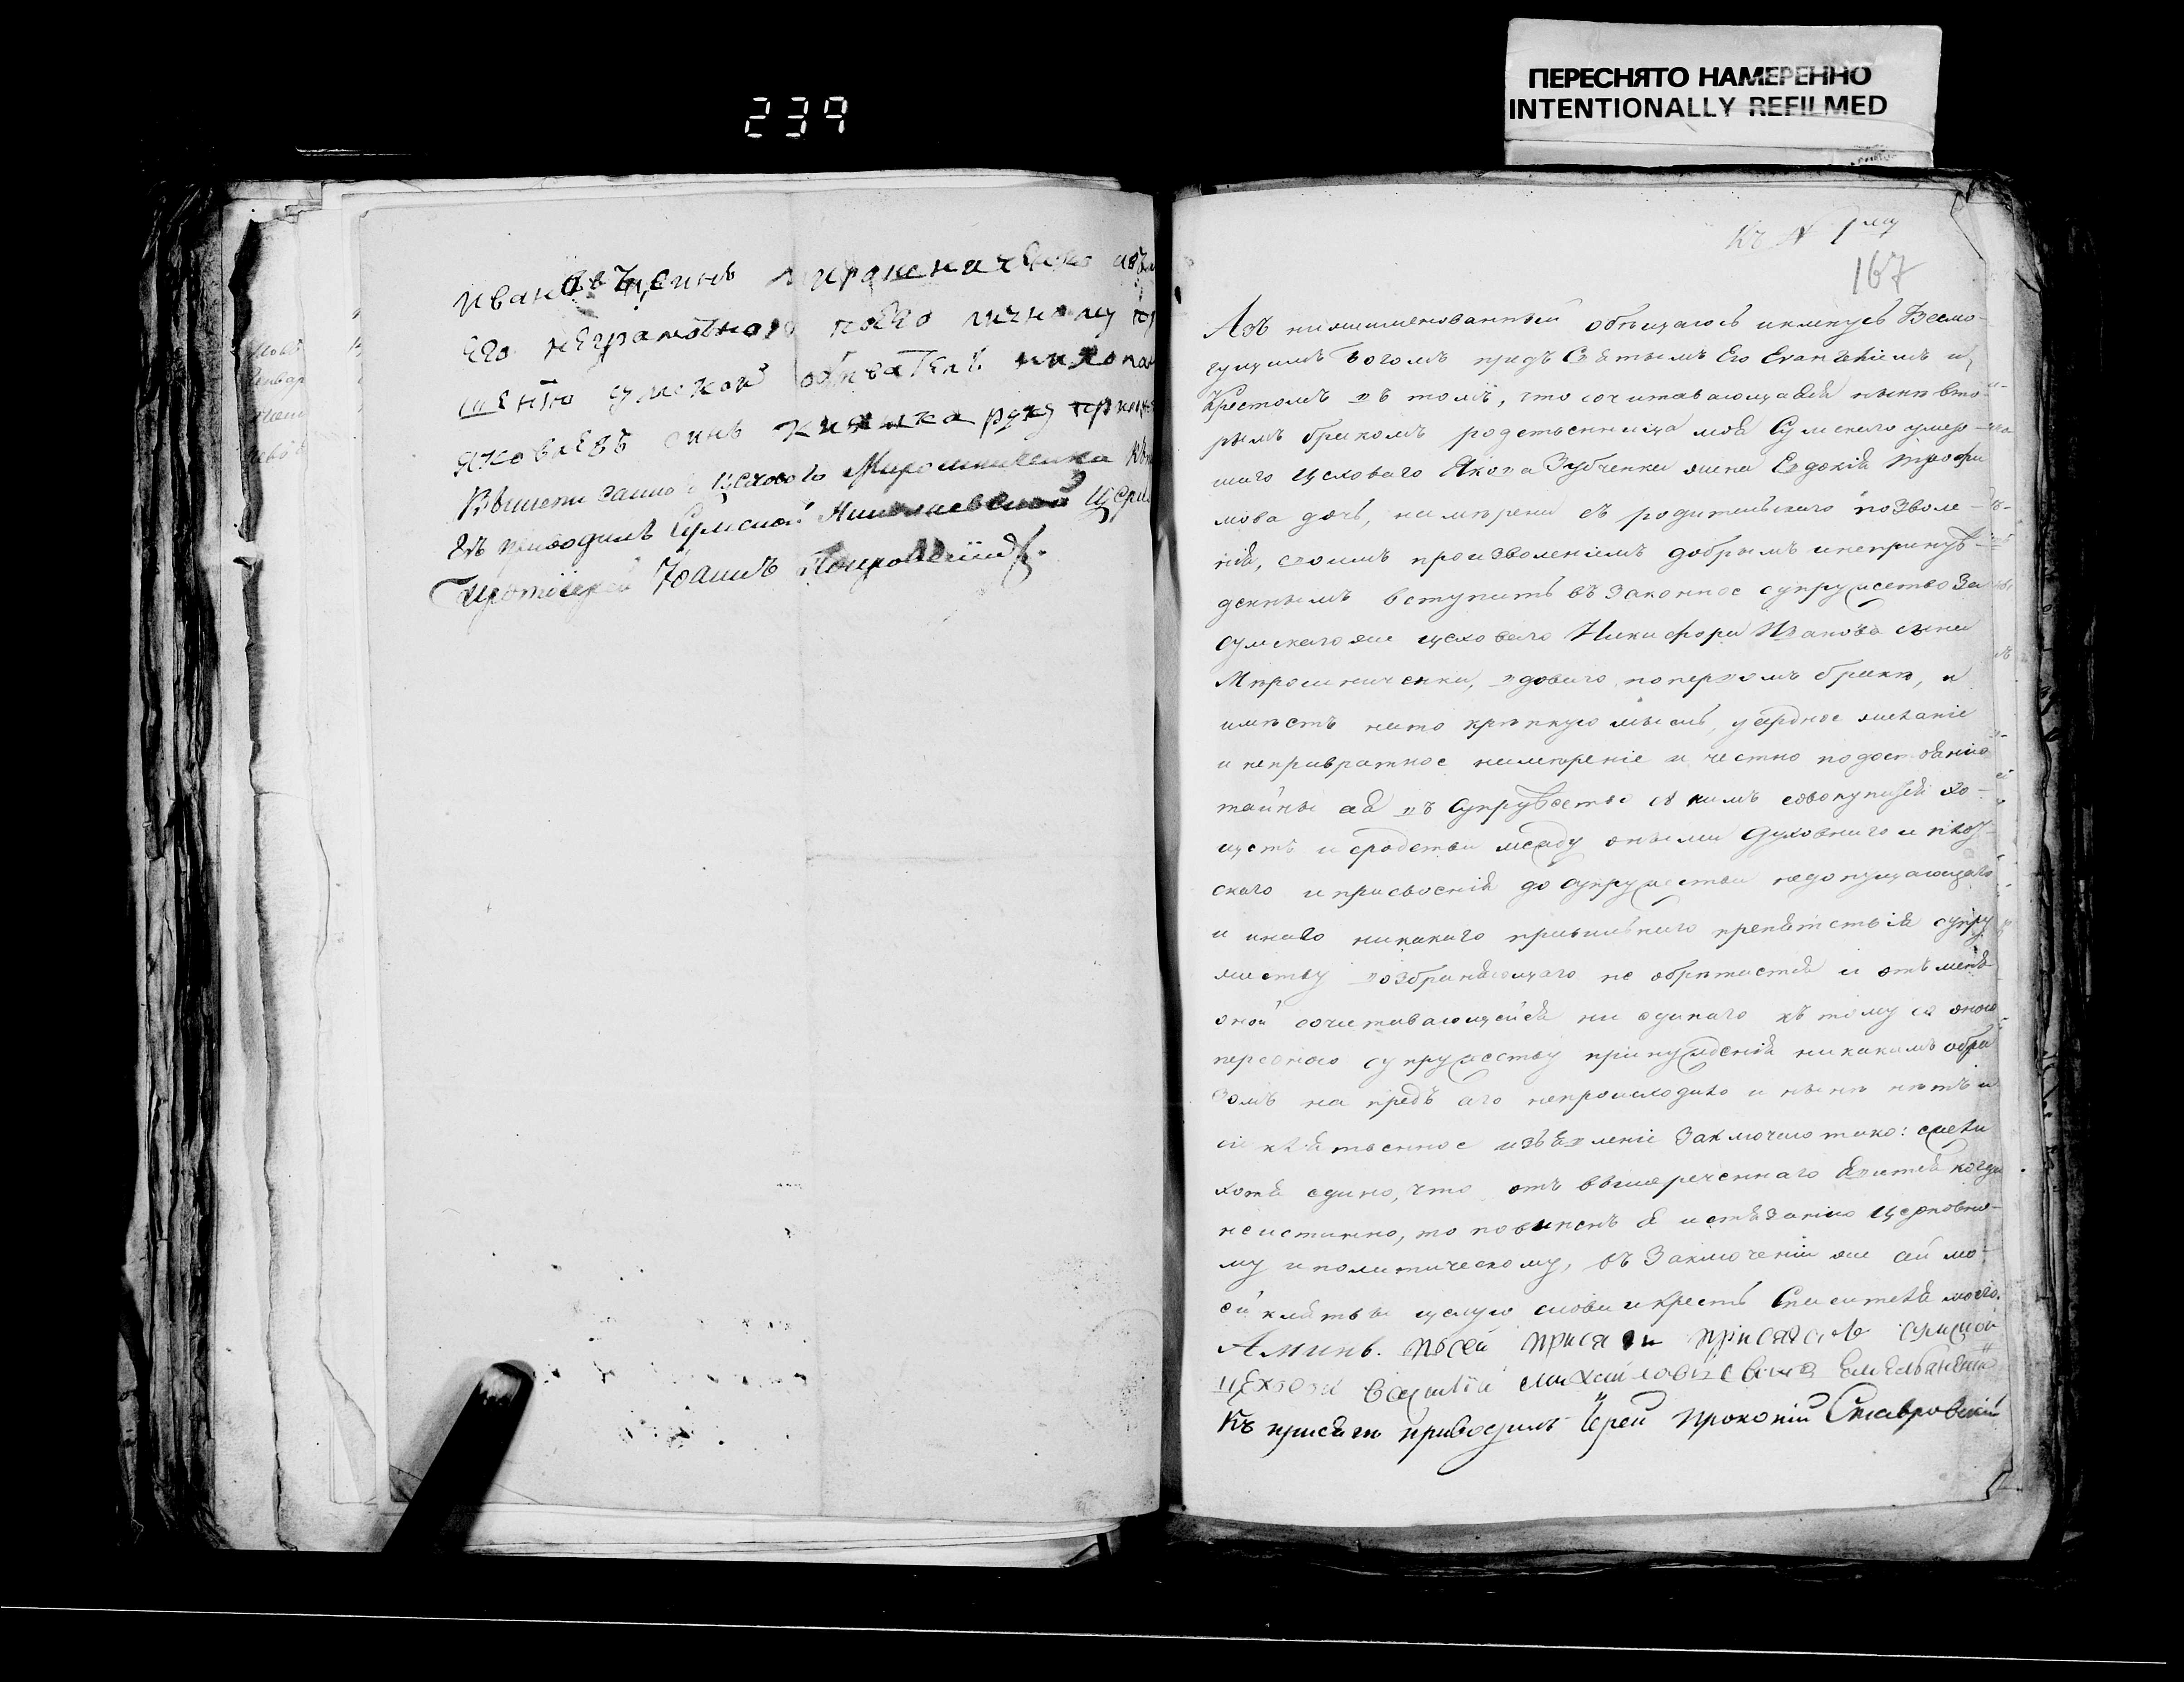 ПЕРЕСНЯТО НАМЕРЕННО
INTENTIONALLY REFILMED
239
Ивановъ синъ
его неграмотного поего личному
шению сумской
Яковлевъ синъ руку
цехового Мирошниченка
приводилъ Сумской Николаевской
Протоіерей Іоаннъ
Къ № 1му
167
Азъ нижеименованный обѣщаюсь и кленусь Всемо-
гущимъ Богомъ предъ Святымъ Его Евангеліемъ и
Крестомъ въ томъ, что сочитавающаяся нынѣ вто-
рымъ бракомъ родственница моя Сумскаго умер-
шаго цеховаго Якова Зубченка жена Евдокія Трофи
мова дочь, намѣрена съ родительскаго позволе-
нія, своимъ произволеніемъ добрымъ и непринуж-
деннымъ вступить въ законное супружество за
сумскаго же цеховаго Никифора Иванова сына
Мирошниченка, вдоваго по первомъ бракѣ, и
имѣетъ на то крѣпкую мысль, усердное желаніе
и непривратное намѣреніе и честно по достоянію
тайны ея въ супружество съ нимъ совокупится хо-
щетъ и сродства между оными духовнаго и плот-
скаго и присвоенія до супружества недопущающаго
и инаго никакого правильнаго препятствія супру
жеству возбраняющаго не обрѣтается и отъ меня
оной сочитавающейся ни единаго къ тому со оною
персоною супружеству принужденія никакимъ обра
зомъ на предъ сего непроисходило и нынѣ нѣтъ и
сіе клятвенное изъявленіе заключаю тако: ежели
хотя едино, что отъ вышереченнаго явится когда
неистинно, то повиненъ я истязанію церковно-
му и политическому, въ заключеніи же сей мо-
ей клятвы цѣлую слова и крестъ Спасителя моего.
Аминь. По сей присяги присягалъ сумской
цехови Василій Михайловъ синъ
Къ присягѣ приводилъ Іерей Прокопій Ставровскій